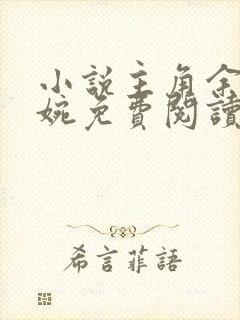 小說主角余
婉免費閱讀
希言菲語